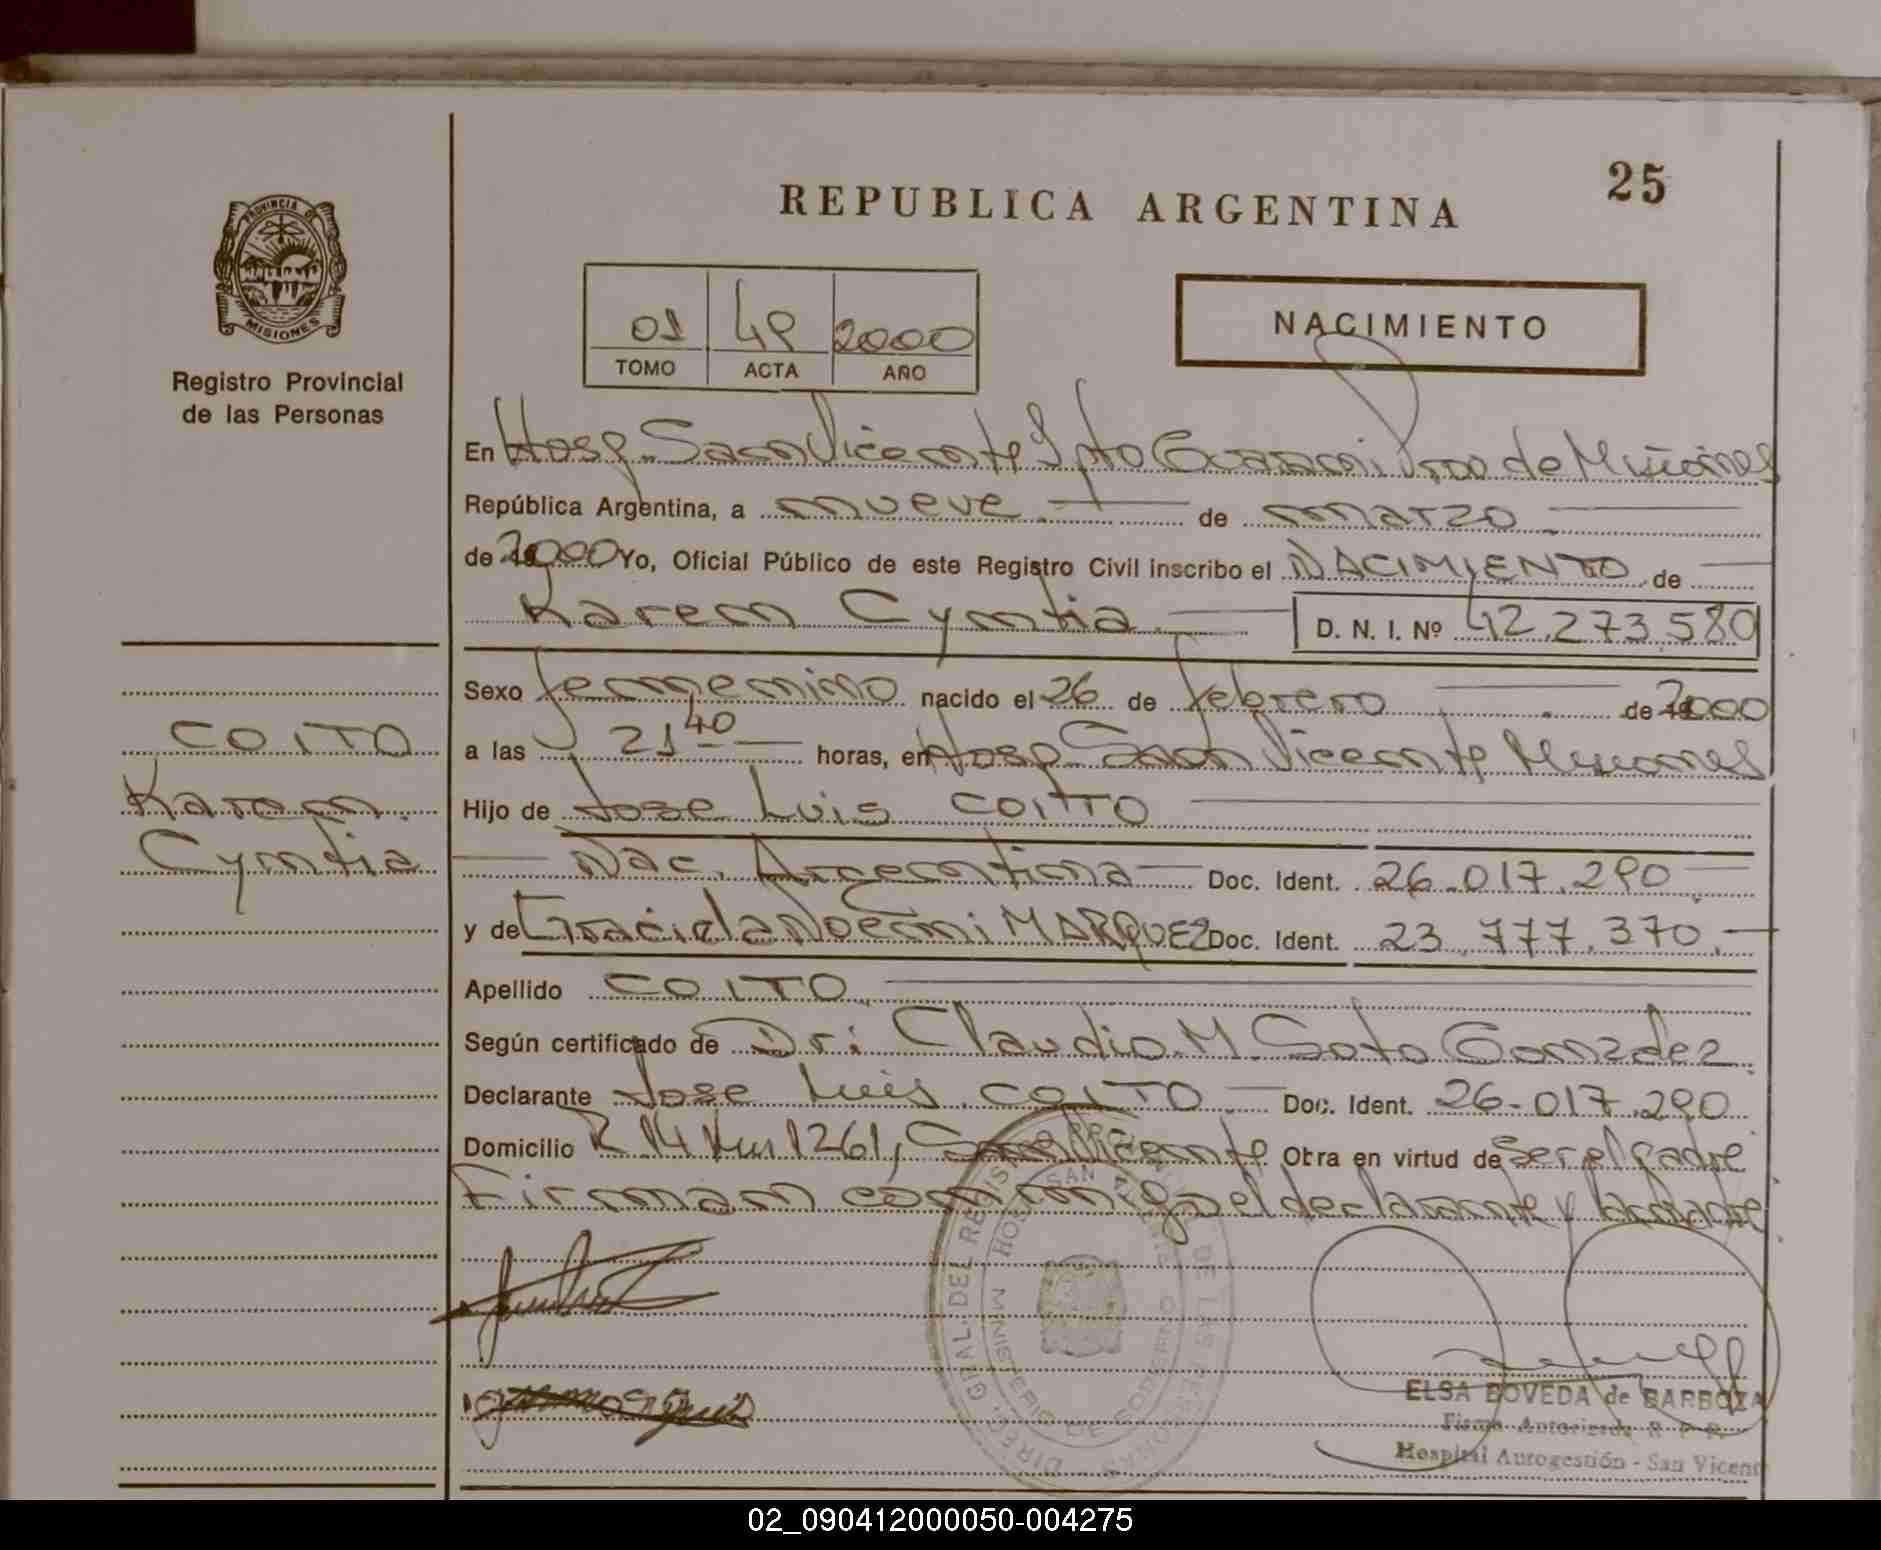 25
REPUBLICA ARGENTINA
PROVINCIA DE
MISIONES
Registro Provincial
de las Personas
01 49 2000
TOMO ACTA AÑO
NACIMIENTO
En Hosp. San Vicente Dpto Guarani Pcia de Misiones
República Argentina, a nueve de marzo
de 2000 Yo, Oficial Público de este Registro Civil inscribo el NACIMIENTO de
Karen Cyntia D. N. I. Nº 42.273.580
Sexo femenino nacido el 26 de febrero de 2000
a las 21 40 horas, en Hosp San Vicente Misiones
Hijo de Jose Luis COITO
Nac. Argentina Doc. Ident. 26.017.290
y de Graciela Noemi MARQUEZ Doc. Ident. 23.777.370.
Apellido COITO
Según certificado de Dr: Claudio M. Soto Gonzalez
Declarante Jose Luis COITO Doc. Ident. 26-017.290
Domicilio R 14 Km 1261, San Vicente Obra en virtud de ser el padre
Firman conmigo el declarante y la madre
COITO
Karen
Cyntia
DIREC. GRAL. DEL REGIS DE LAS PERSONAS
HOSP SAN VICENTE
MINISTERIO DE GOBIERNO
ELSA BOVEDA de BARBOZA
Firma Autorizada R. P. P.
Hospital Autogestión - San Vicent
02_090412000050-004275